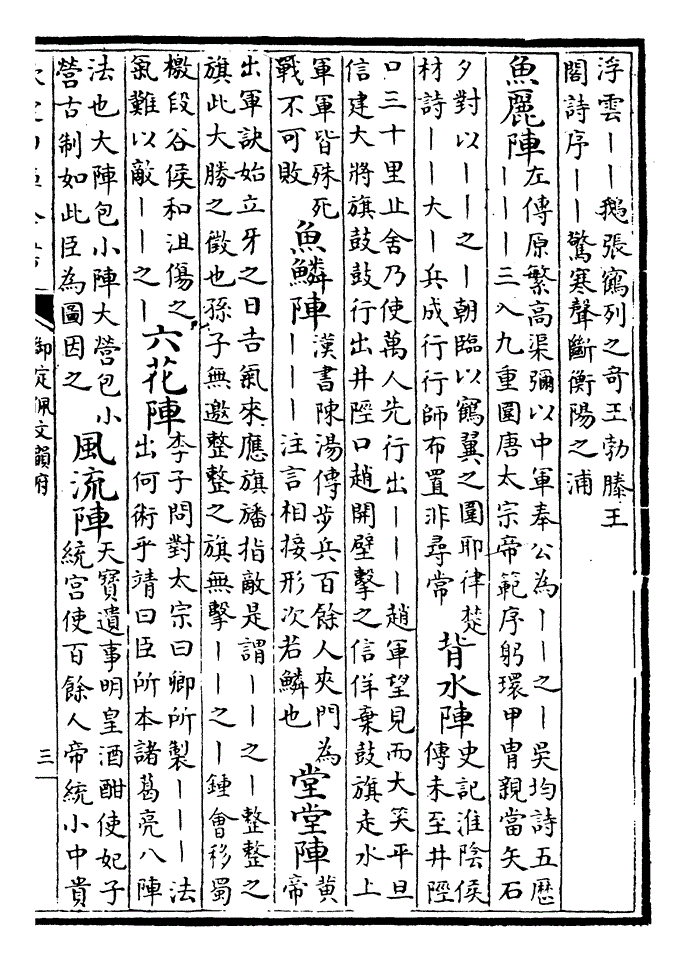 浮雲丨丨鵝張鸛列之奇王勃滕王
閣詩序丨丨驚寒聲斷衡陽之浦
魚麗陣
左傳原繁高渠彌以中軍奉公為丨丨之丨吳均詩五歷
丨丨丨三入九重圍唐太宗帝範序躬環甲冑親當矢石
夕對以丨丨之丨朝臨以鸛翼之圍耶律楚
材詩丨丨大丨兵成行行師布置非尋常
背水陣
史記淮陰侯
傳未至井陘
口三十里止舍乃使萬人先行出丨丨丨趙軍望見而大笑平旦
信建大將旗鼓鼓行出井陘口趙開壁擊之信佯棄鼓旗走水上
軍軍皆殊死
戰不可敗
魚鱗陣
漢書陳湯傳步兵百餘人夾門為
丨丨丨注言相接形次若鱗也
堂堂陣
黃
帝
出軍訣始立牙之日吉氣來應旗旛指敵是謂丨丨之丨整整之
旗此大勝之徵也孫子無邀整整之旗無擊丨丨之丨鍾會移蜀
檄段谷侯和沮傷之
氣難以敵丨丨之丨
六花陣
李子問對太宗曰卿所製丨丨丨法
出何術乎靖曰臣所本諸葛亮八陣
法也大陣包小陣大營包小
營古制如此臣為圖因之
風流陣
天寶遺事明皇酒酣使妃子
統宮使百餘人帝統小中貴
御定佩文韻府
三